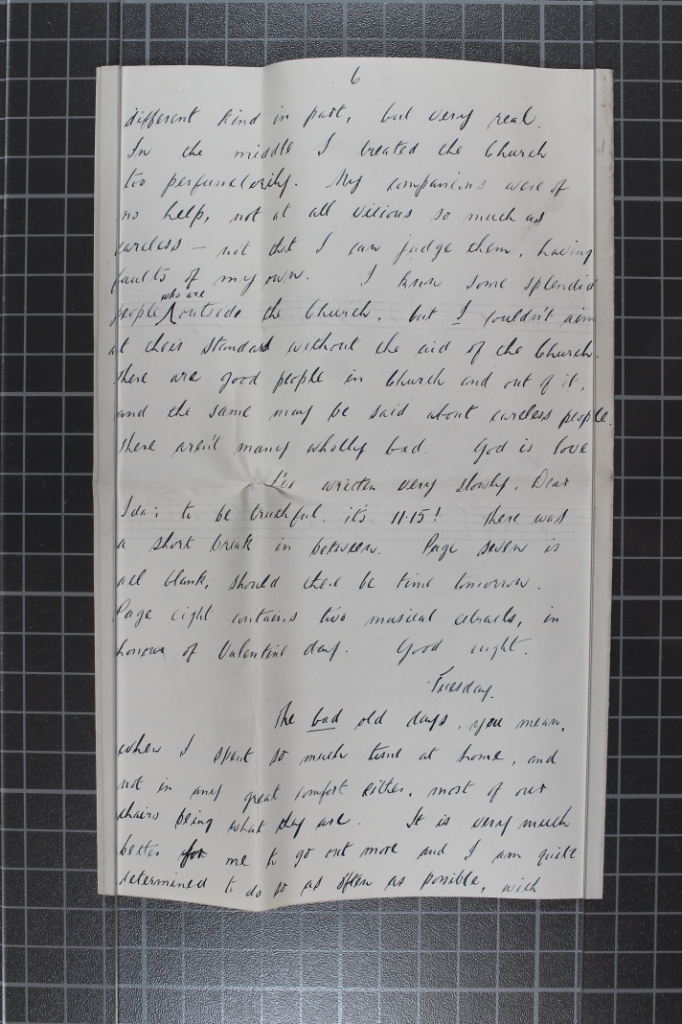 6
different kind in part, but very real.
In the middle I treated the Church
too perfunctorily. My companions were of
no help, not at all vicious so much as
careless – not that I can judge them, having
faults of my own. I know some splendid
who are
people outside the Church, but I couldn't aim
at their standard without the aid of the Church.
There are good people in Church and out of it,
and the same may be said about careless people.
There aren't many wholly bad. God is love
I've written very slowly, Dear
Ida: to be truthful, it's 11.15! There was
a short break in between. Page seven is
all blank, should there be time tomorrow.
Page eight contains two musical extracts, in
honour of Valentine day. Good night.
Tuesday.
The bad old days, you mean,
when I spent so much time at home, and
not in any great comfort either, most of our
chairs being what they are. It is very much
better for me to go out more and I am quite
determined to do so as often as possible, with